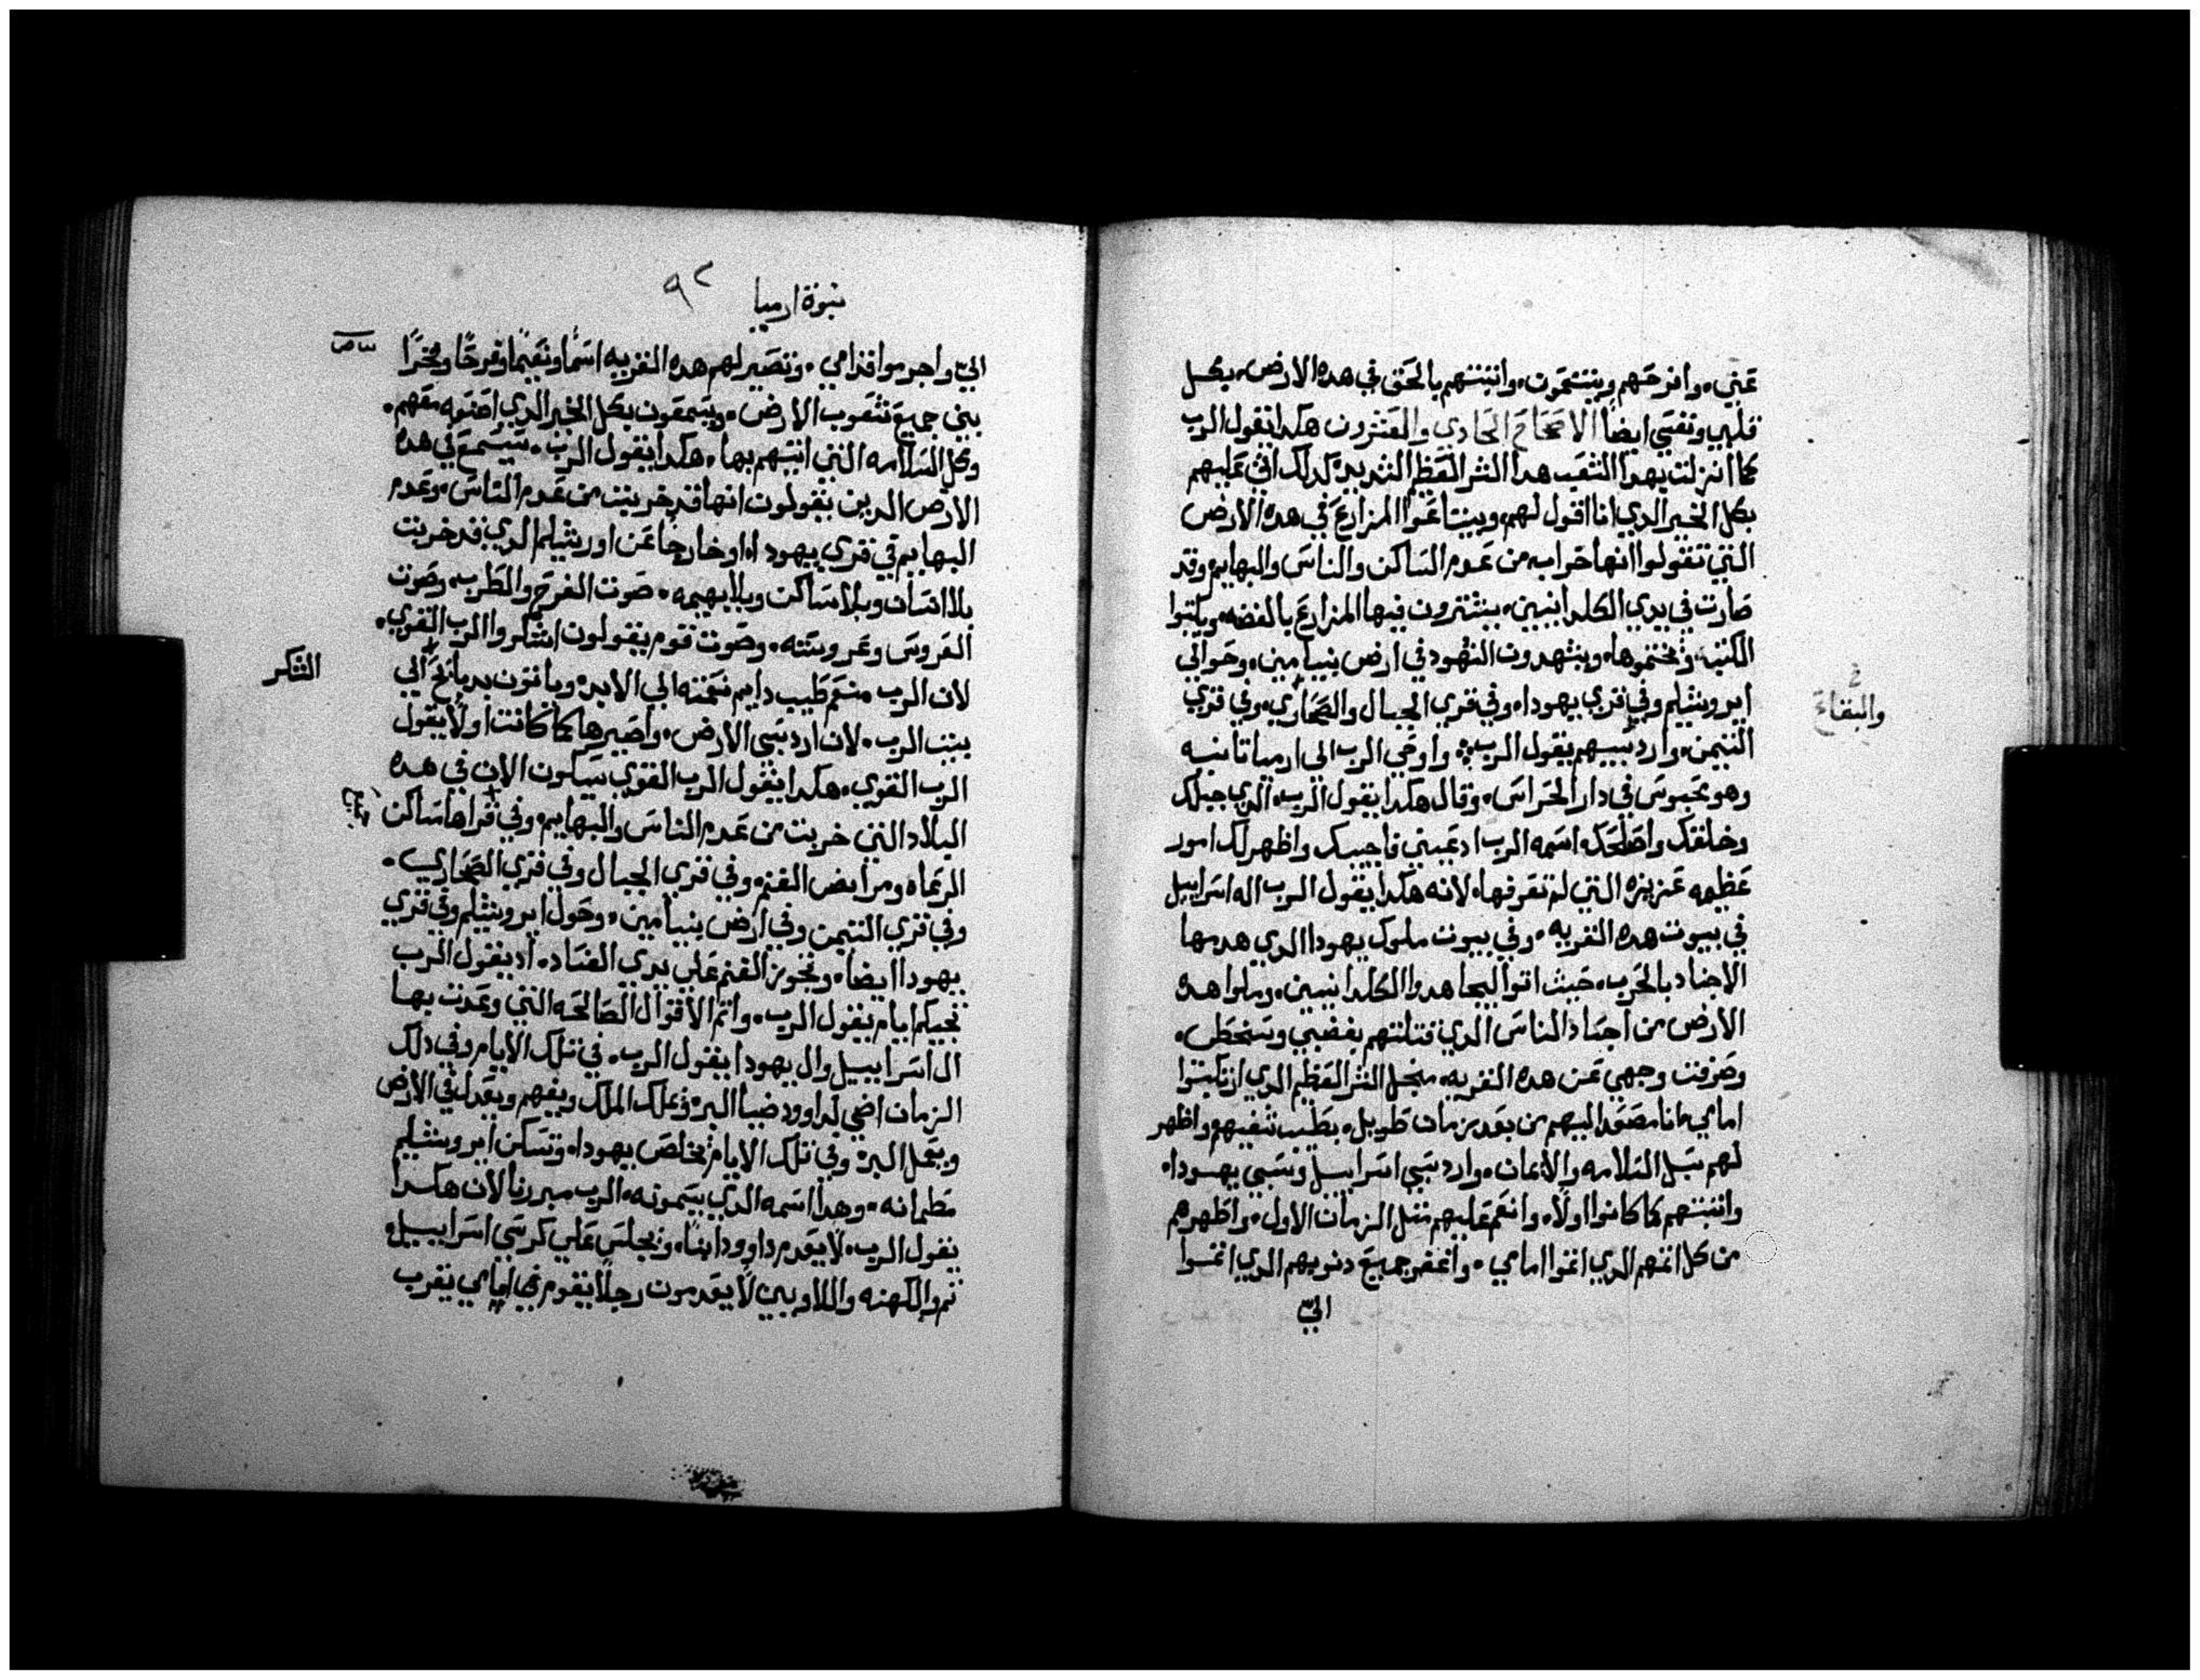 عني. وافرحهم وينتعمون. واتبتهم بالحق في هده الارض. بكل
قلبي ونفسي ايضاً الاصحاح الحادي والعشرون هكدا يقول الرب
كما انزلت بهدا الشعب هدا الشر العظم الشديد. كدلك اتي عليهم
بكل الخير الدي انا اقول لهم. ويبتاعوا المزارع في هده الارض
التي تقولوا انها خرابه من عدم الساكن والناس والبهايم. وقد
صارت في يدي الكلدانيين. يشترون فيها المزارع بالفضه. ويكتبوا
الكتب. ويختموها. ويشهدون الشهود في ارض بنيامين. وحوالي
ايروشليم وفي قري يهودا. وفي قري الجبال والصحاري. وفي قري
والبقاع
التيمن. وارد سبيهم يقول الرب. واوحي الرب الي ارميا تانيه
وهو محبوس في دار الحراس. وقال هكدا يقول الرب. الدي جبلك
وخلقك واصلحك. اسمه الرب ادعيني فاجيبك واظهر لك امور
عظيمه عزيزه التي لم تعرفها. لانه هكدا يقول الرب اله اسراييل
في بيوت هده القريه. وفي بيوت ملوك يهودا الدي هدمها
الاجناد بالحرب. حيث اتوا ليجاهدوا الكلدانيين. وملوا هده
الارض من اجساد الناس الدي قتلتهم بغضبي وسخطي.
وصرفت وجهي عن هده القريه. منجل الشر العظيم الدي ارتكبوا
امامي. هانا مصعد اليهم من بعد زمان طويل. بطيب شفيهم. واظهر
لهم سبل السلامه والايمان. وارد سبي اسراييل وسبي يهودا.
واتبتهم كما كانوا اولاً. وانعم عليهم مثل الزمان الاول. واطهرهم
من كل اتمهم الدي اتموا امامي. واغفر جميع دنوبهم الدي اتموا
اليّ
نبوة ارميا ٩٢
اليّ واجرموا قدامي. وتصير لهم هده القريه اسماً ونعيماً وفرحاً وفخراً
بين جميع شعوب الارض. ويسمعون بكل الخير الدي اصنعه معهم.
وكل السلامه التي اتيتهم بها. هكدا يقول الرب. سيسمع في هده
الارض الدين يقولون انها قد خربت من عدم الناس. وعدم
البهايم في قري يهودا. او خارجاً عن اورشليم الدي قد خربت
بلا انسان وبلا ساكن وبلا بهيمه. صوت الفرح والطرب. وصوت
العروس وعروسته. وصوت قوم يقولون اشكروا الرب القوي.
لان الرب منعم طيب دايم نعمته الي الابد. وياتون بدبايح الي
الشكر
بيت الرب. لان ارد سبي الارض. واصيرها كما كانت اولاً يقول
الرب القوي. هكدا يقول الرب القوي سيكون الان في هده
البلاد التي خربت من عدم الناس والبهايم. وفي قراها ساكن
الرعاه ومرابض الغنم. وفي قري الجبال وفي قري الصحاري.
وفي قري التيمن وفي ارض بنيامين. وحول ايروشليم وفي قري
يهودا ايضا. وتجوز الغنم علي يدي العداد. اد يقول الرب
تجيكم ايام يقول الرب. واتم الاقوال الصالحه التي وعدت بها
ال اسراييل وال يهودا يقول الرب. في تلك الايام وفي دلك
الزمان اضي لداوود ضيا البر. ويملك الملك ويفهم ويعدل في الارض
ويعمل البر. وفي تلك الايام يخلص يهودا. وتسكن ايروشليم
مطمانه. وهدا اسمه الدي يسمونه. الرب مبررنا لان هكدا
يقول الرب. لا يعدم داوود ابناً. ويجلس علي كرسي اسراييل.
تم والكهنه واللاويين لا يعدمون رجلاً يقوم في امامي يقرب